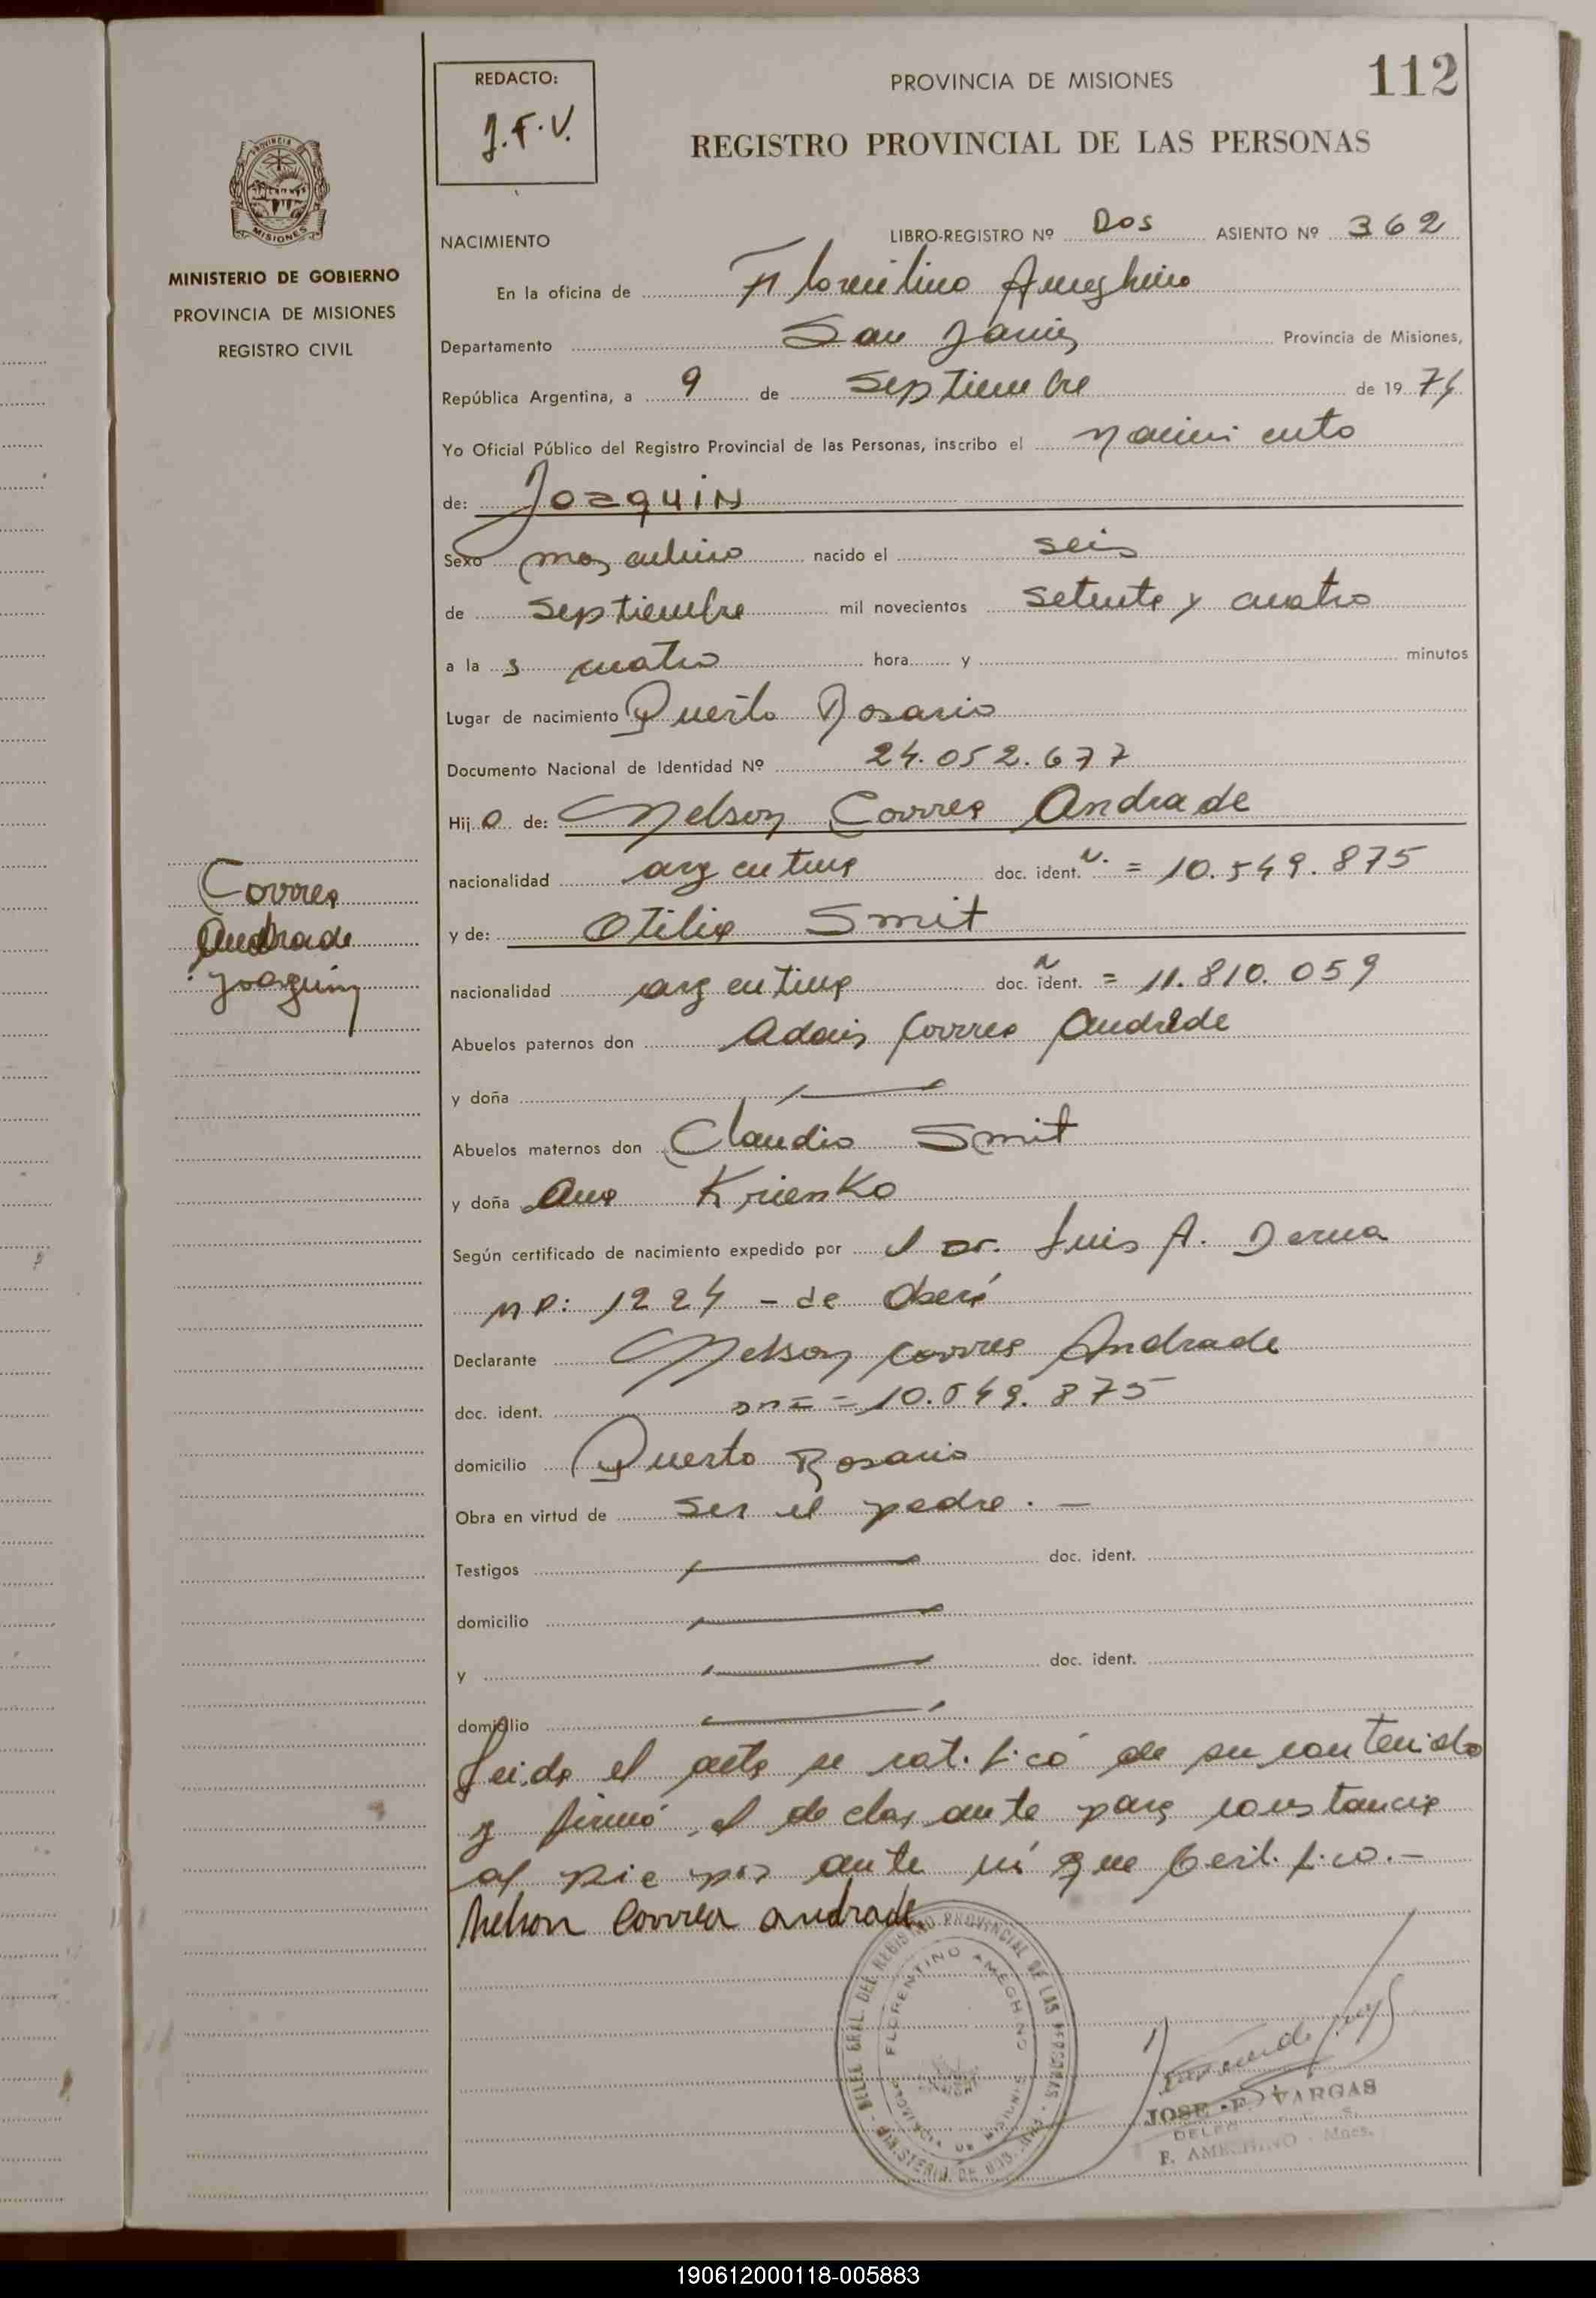 112
REDACTO:
J.F.V.
PROVINCIA DE MISIONES
REGISTRO PROVINCIAL DE LAS PERSONAS
PROVINCIA DE
MISIONES
MINISTERIO DE GOBIERNO
PROVINCIA DE MISIONES
REGISTRO CIVIL
NACIMIENTO LIBRO-REGISTRO Nº Dos ASIENTO Nº 362
En la oficina de Florentino Ameghino
Departamento San Javier Provincia de Misiones,
República Argentina, a 9 de Septiembre de 19 74
Yo Oficial Público del Registro Provincial de las Personas, inscribo el nacimiento
de: Joaquin
Sexo masculino nacido el seis
de Septiembre mil novecientos setenta y cuatro
a la s cuatro hora y minutos
Lugar de nacimiento Puerto Rosario
Documento Nacional de Identidad Nº 24.052.677
Hij o de: Nelson Correa Andrade
nacionalidad argentina doc. ident. N. = 10.549.875
y de: Otilia Smit
nacionalidad argentina doc. ident. n = 11.810.059
Abuelos paternos don Adais Correa Andrade
y doña
Abuelos maternos don Claudio Smit
y doña Ana Krienko
Según certificado de nacimiento expedido por el Dr. Luis A. Derna
MP: 1224 - de Oberá
Declarante Nelson Correa Andrade
doc. ident. DNI = 10.549.875
domicilio Puerto Rosario
Obra en virtud de ser el padre. —
Testigos doc. ident.
domicilio
y doc. ident.
domicilio
Leida el acta se ratificó de su contenido
y firmó el declarante para constancia
al pie por ante mí que Certifico.-
Nelson Correa andrade
Correa
Andrade
Joaquin
DELEG. GRAL. DEL REGISTRO PROVINCIAL DE LAS PERSONAS
FLORENTINO AMEGHINO
MINISTERIO DE GOB.
JOSE F. VARGAS
F. AMEGHINO - Mnes.
190612000118-005883